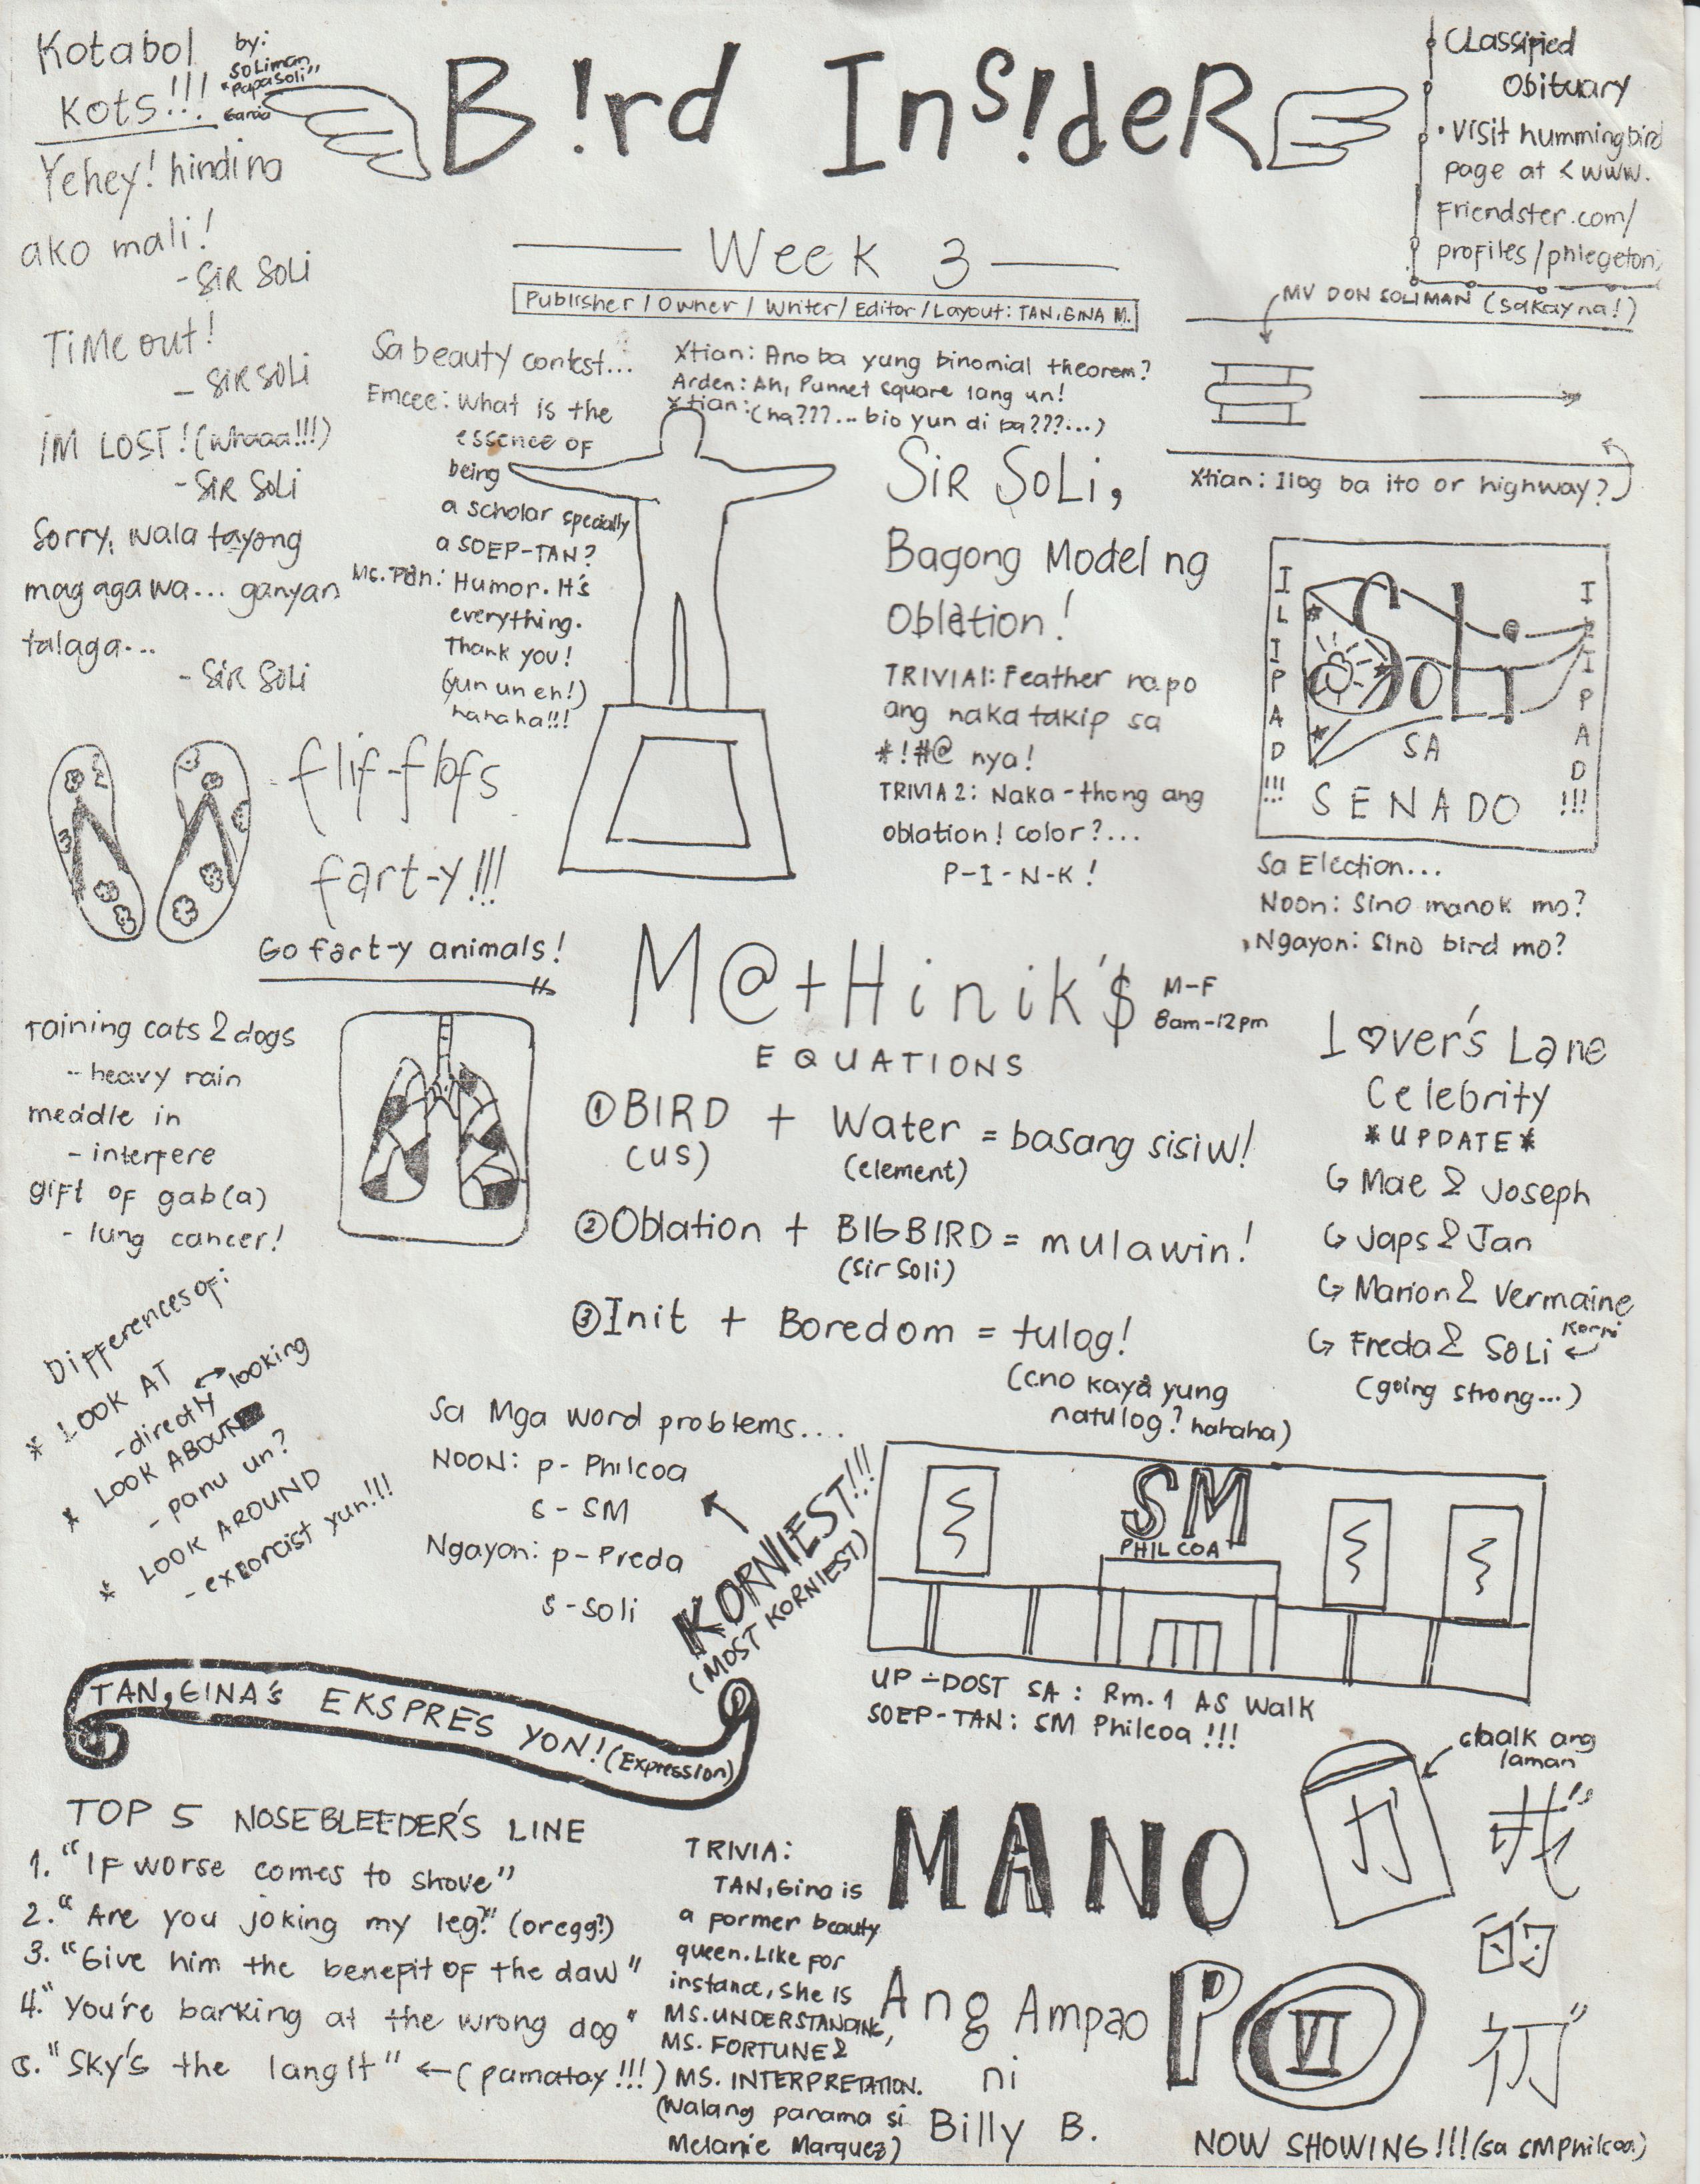 Kotabol
Kots!!!
by:
Soliman
"Papasoli"
Garcia
Yehey! hindi na
ako mali!
- SiR SOli
TiMe out!
- SiR SOli
iM LOST! (whaaa!!!)
- SiR SOli
Sorry, wala tayong
mag agawa... ganyan
talaga...
- SiR SOli
B!rd Ins!deR
Week 3
Publisher / Owner / Writer / Editor / Layout: TAN, GINA M.
CLassified
Obituary
• Visit hummingbird
page at < www.
Friendster.com/
profiles/phlegeton,
MV DON SOLIMAN (sakay na!)
Xtian: Ilog ba ito or highway?
Sa beauty contest...
Emcee: What is the
essence of
being
a scholar specially
a SOEP-TAN?
Ms. Pan: Humor. It's
everything.
Thank you!
(yun un eh!)
hahaha!!!
Xtian: Ano ba yung binomial theorem?
Arden: Ah, Punnet square lang un!
Xtian: (ha???... bio yun di ba???...)
SiR SoLi,
Bagong Model ng
Oblation!
TRIVIA1: Feather na po
ang naka takip sa
*!#@ nya!
TRIVIA 2: Naka-thong ang
oblation! color?...
P-I-N-K!
ILIPAD!!!
Soli
SA
SENADO
ILIPAD!!!
Sa Election...
Noon: Sino manok mo?
Ngayon: Sino bird mo?
flif-flofs
fart-y!!!
Go fart-y animals!
raining cats & dogs
-- heavy rain
meddle in
- interfere
gift of gab(a)
- lung cancer!
M@+Hinik'$
M-F
8am-12pm
EQUATIONS
① BIRD + Water = basang sisiw!
(US) (element)
② Oblation + BIGBIRD = mulawin!
(Sir Soli)
③ Init + Boredom = tulog!
(cno kaya yung
natulog? hahaha)
L♡ver's Lane
Celebrity
*UPDATE*
↳ Mae & Joseph
↳ Japs & Jan
↳ Marion & Vermaine
↳ Freda & SoLi ← Korni
(going strong...)
Differences of:
* LOOK AT
- directly ↔ looking
* LOOK ABOUT
- panu un?
* LOOK AROUND
- exorcist yun!!!
Sa Mga word problems....
NOON: p - Philcoa
s - SM
Ngayon: p - Preda
s - Soli
KORNIEST!!!
(MOST KORNIEST)
SM
PHILCOA
UP-DOST SA: Rm. 1 AS Walk
SOEP-TAN: SM Philcoa!!!
TAN, GINA's EKSPRES YON! (Expression)
TOP 5 NOSEBLEEDER'S LINE
1. "IF worse comes to shove"
2. "Are you joking my leg?" (oregg?)
3. "Give him the benefit OF the daw"
4. "You're barking at the wrong dog"
5. "Sky's the langit" ← (pamatay!!!)
TRIVIA:
TAN, Gina is
a former beauty
queen. Like for
instance, she is
MS. UNDERSTANDING,
MS. FORTUNE &
MS. INTERPRETATION.
(Walang panama si
Melanie Marquez)
MANO
PO VI
Ang Ampao
ni
Billy B.
chalk ang
laman
我
的
NOW SHOWING!!! (sa SMPhilcoa)